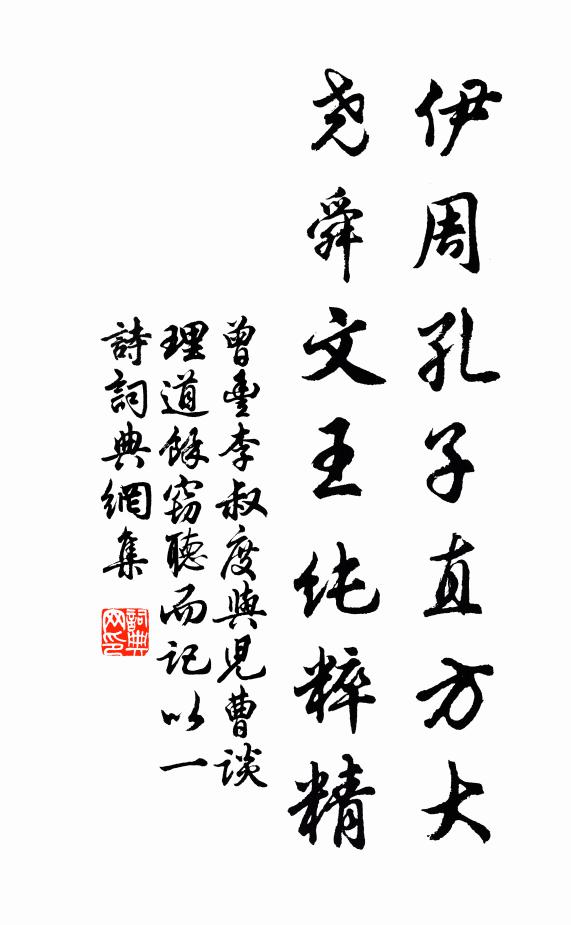 伊周孔子直方大
尧舜文王纯粹精
曾豊李叔度與児曹談
理道餘窃聽而記以一
詩詞典網集
詞典
网印